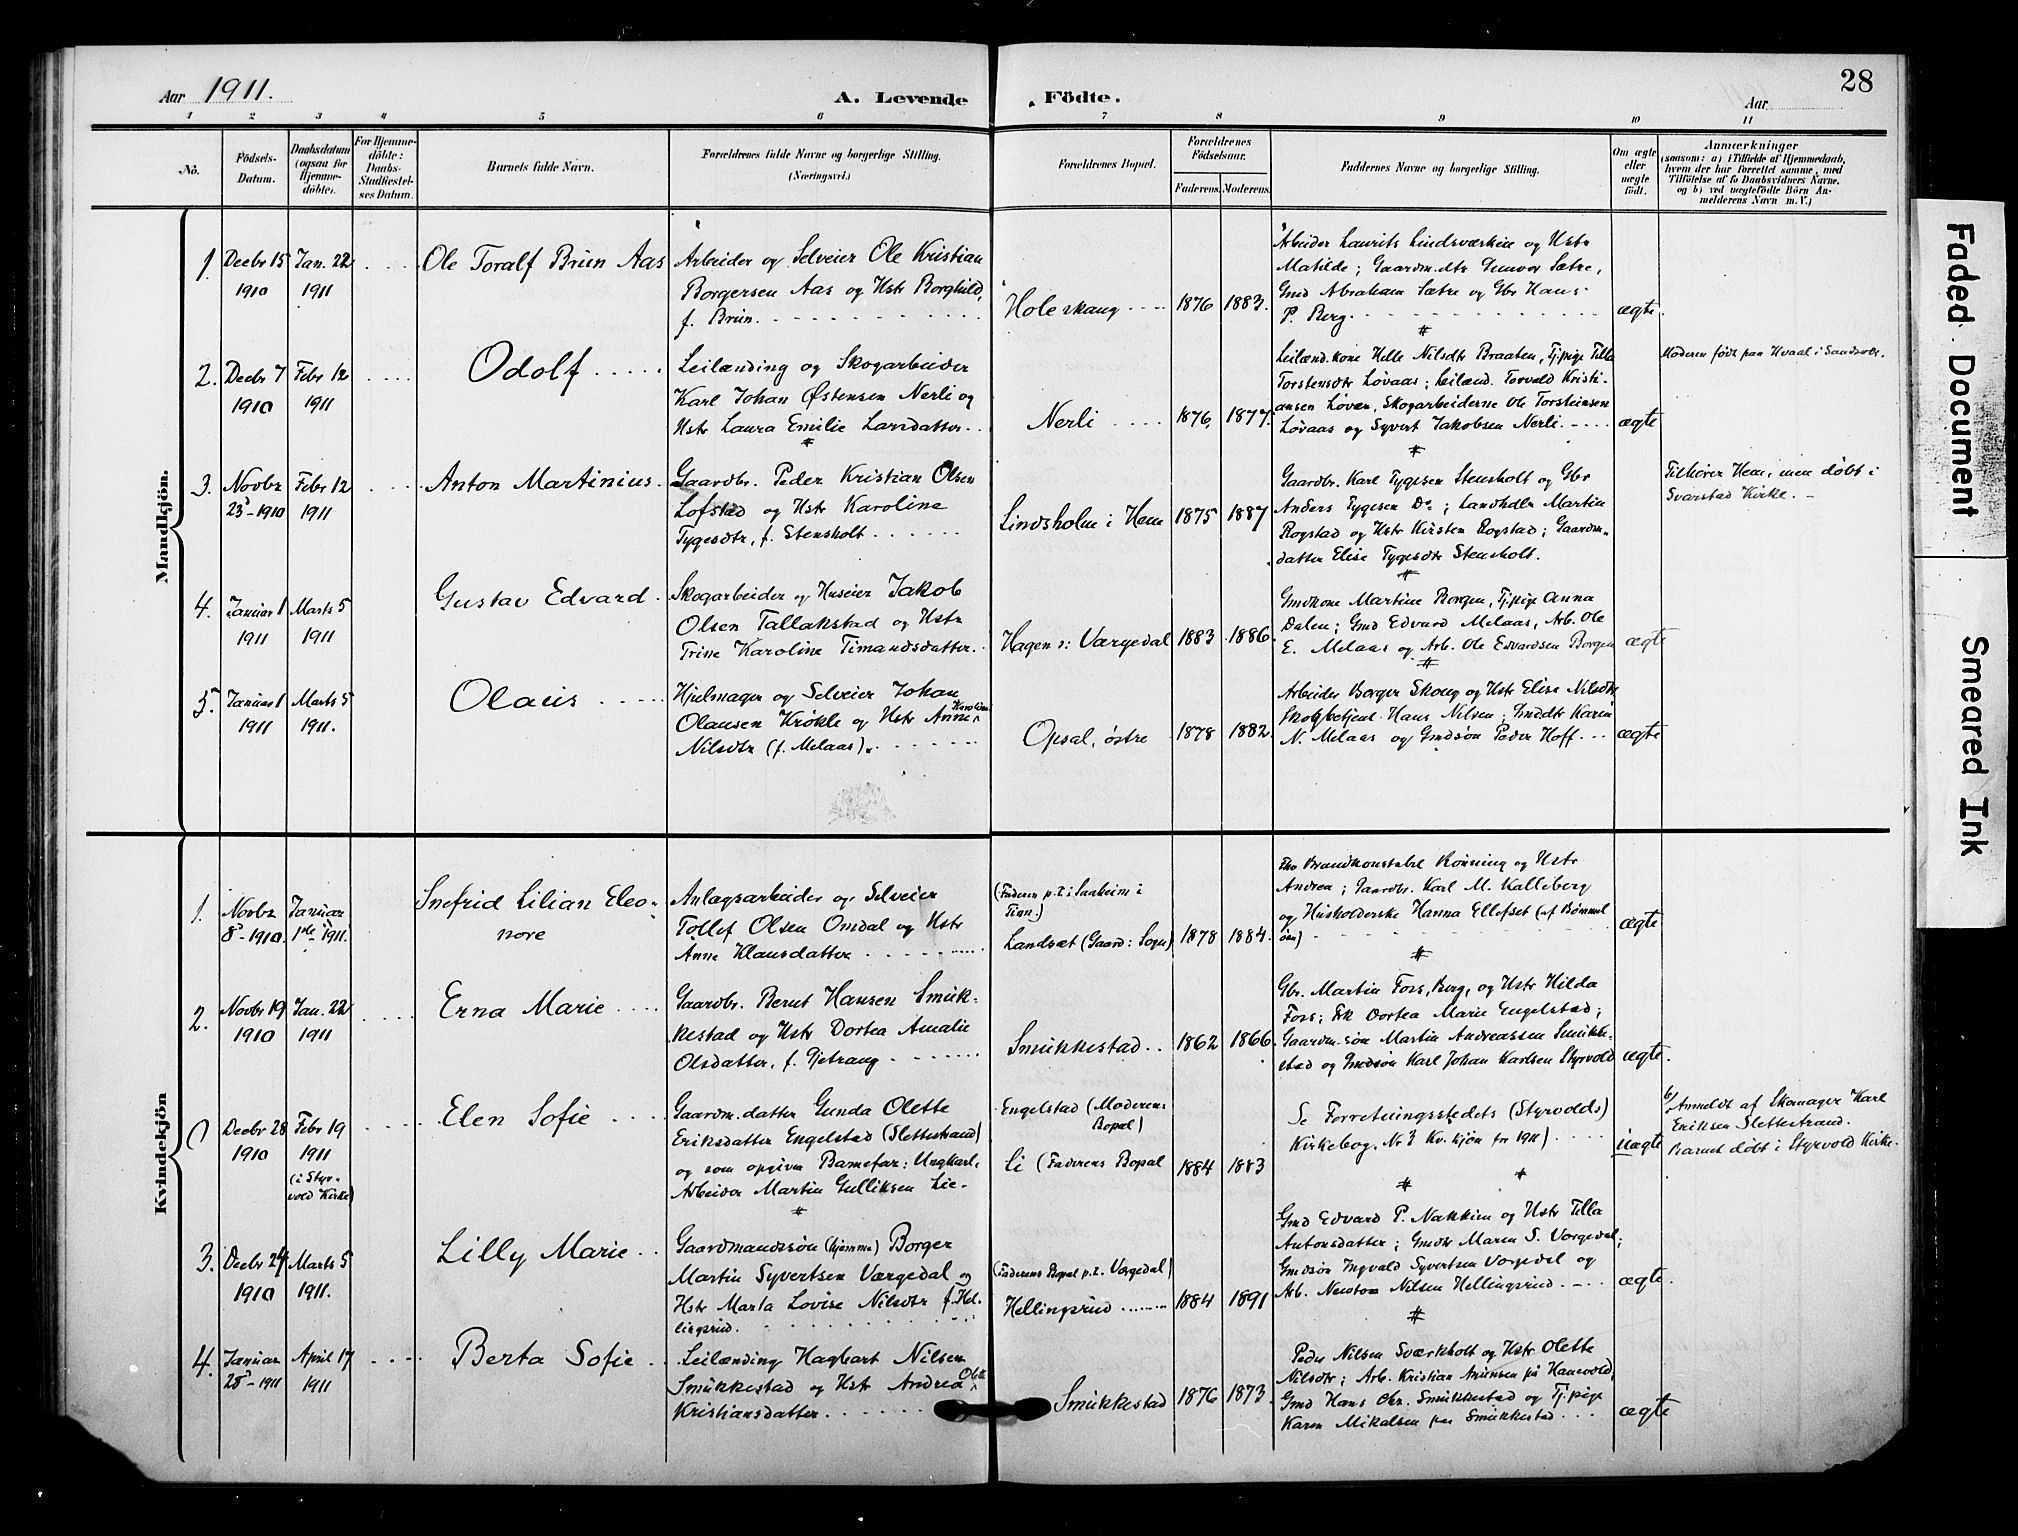 28
Aar 1911.
A. Levende Födte.
Aar
1 2 3 4 5 6 7 8 9 10 11
No.
Födsels-
Datum.
Daabsdatum
(ogsaa for
Hjemme-
döbte).
For Hjemme-
döbte:
Daabs-
Stadfæstel-
ses Datum.
Barnets fulde Navn.
Forældrenes fulde Navne og borgerlige Stilling.
(Næringsvei.)
Forældrenes Bopæl.
Forældrenes
Födselsaar.
Faderens. Moderens.
Faddernes Navne og borgerlige Stilling.
Om ægte
eller
uægte
født.
Anmærkninger
(saasom: a) i Tilfælde af Hjemmedaab,
hvem der har forrettet samme, med
Tilföielse af to Daabsvidners Navne,
og b) ved uægtefödte Börn An-
melderens Navn m. V.)
Mandkjön.
1.
Decbr 15
1910
Jan. 22
1911
Ole Toralf Brun Aas
Arbeider og Selveier Ole Kristian
Borgersen Aas og Hstr Borghild,
f. Brun.
Holeskaug
1876
1883.
Arbeider Laurits Lindsværkein og Hstr
Matilde; Gaardm.dtr Gunvor Sætre,
Gmd Abraham Sætre og Gbr Hans
P. Berg.
ægte.
2.
Decbr 7
1910
Febr 12
1911
Odolf
Leilænding og Skogarbeider
Karl Johan Østensen Nerli og
Hstr Laura Emilie Larsdatter.
Nerli
1876,
1877.
Leilænd.kone Helle Nilsdtr Braaten, Tj.pige Tilla
Torstensdtr Løvaas; Leilænd. Torvald Kristi-
ansen Løver, Skogarbeiderne Ole Torsteinsen
Løvaas og Syvert Jakobsen Nerli.
ægte
Moderen født paa Hvaal i Sandsvær.
3.
Novbr
23-1910
Febr 12
1911
Anton Martinius.
Gaardbr. Peder Kristian Olsen
Lofstad og Hstr Karoline
Tygesdtr, f. Stensholt
Lindsholm i Hem
1875
1887
Gaardbr. Karl Tygesen Stensholt og Gbr
Anders Tygesen Do; Landhdlr Martin
Rogstad og Hstr Kirsten Rogstad; Gaardm-
datter Elise Tygesdtr Stensholt.
Tilhører Hem, men døbt i
Svarstad Kirke.
4.
Januar 1
1911
Marts 5
1911
Gustav Edvard
Skogarbeider og Huseier Jakob
Olsen Tallakstad og Hstr
Trine Karoline Timandsdatter.
Hagen s: Værgedal
1883
1886.
Gmdkone Martine Borgen, Tj.pige Anna
Dalen; Gmd Edvard Melaas, Arb. Ole
E. Melaas og Arb. Ole Edvardsen Borgen
ægte
5.
Januar 1
1911
Marts 5
1911.
Olaus
Hjulmager og Selveier Johan
Olausen Krøkle og Hstr Anne Karoline
Nilsdtr (f. Melaas).
Opsal, østre
1878
1882.
Arbeider Borger Skoug og Hstr Elise Nilsdtr
Skogbetjent Hans Nilsen; Gmddtr Karin
N. Melaas og Gmdsøn Peder Hoff
ægte
Kvindekjön
1.
Novbr
8-1910.
Januar
1ste 1911.
Snefrid Lilian Eleo-
nore
Anlagsarbeider og Selveier
Tollef Olsen Omdal og Hstr
Anne Klausdatter
(Faderen p.t. i Saaheim i
Tinn.)
Landsæt (Gaard: Sogn)
1878
1884.
Fhv Brandkonstabel Rönning og Hstr
Andrea; Gaardbr. Karl M. Kalleberg
og Husholderske Hanna Ellefset (af Bömmel
öen)
ægte
2.
Novbr 19
1910
Jan. 22
1911
Erna Marie
Gaardbr. Bernt Hansen Smuk-
kestad og Hstr Dortea Amalie
Olsdatter, f. Gjetrang
Smukkestad
1862
1866.
Gbr. Martin Fors, Berg, og Hstr Hilda
Fors; Frk Dortea Marie Engelstad;
Gaardm.søn Martin Andreassen Smukke-
stad og Gmdsøn Karl Johan Karlsen Styrvold
ægte.
Decbr 28
1910
Febr 19
1911
(i Styr-
vold Kirke)
Elen Sofie
Gaardm.datter Gunda Olette
Eriksdatter Engelstad (Slettestrand)
og som opgiven Barnefar: Ungkarl,
Arbeider Martin Gulliksen Lie-
Engelstad (Moderens
Bopæl)
Li (Faderens Bopæl
1884
1883
Se Forretningsstedets (Styrvolds)
Kirkebog, No 3 Kv.kjøn for 1911)
uægte
b/ Anmeldt af Skomager Karl
Eriksen Slettestrand.
Barnet døbt i Styrvold Kirke.
3.
Decbr 24
1910
Marts 5
1911.
Lilly Marie
Gaardmandssøn (hjemme) Borger
Martin Syvertsen Værgedal og
Hstr Marta Lovise Nilsdtr f. Hel-
lingsrud.
(Faderens Bopæl p.t. Vorgedal)
Hellingsrud
1884
1891
Gmd Edvard P. Nakkim og Hstr Tilla
Antonsdatter; Gmdtr Maren S. Vorgedal;
Gmdsøn Ingvald Syvertsen Vorgedal og
Arb. Newton Nilsen Hellingsrud.
ægte.
4.
Januar
28-1911
April 17
1911
Berta Sofie
Leilænding Hagbart Nilsen
Smukkestad og Hstr Andrea Olette
Kristiansdatter
Smukkestad
1876
1873.
Peder Nilsen Sværkholt og Hstr Olette
Nilsdtr; Arb. Kristian Amunsen på Hanevold,
Gmd Hans Chr. Smukkestad og Tj.pige
Karen Mikalsen paa Smukkestad
ægte
Faded Document
Smeared Ink